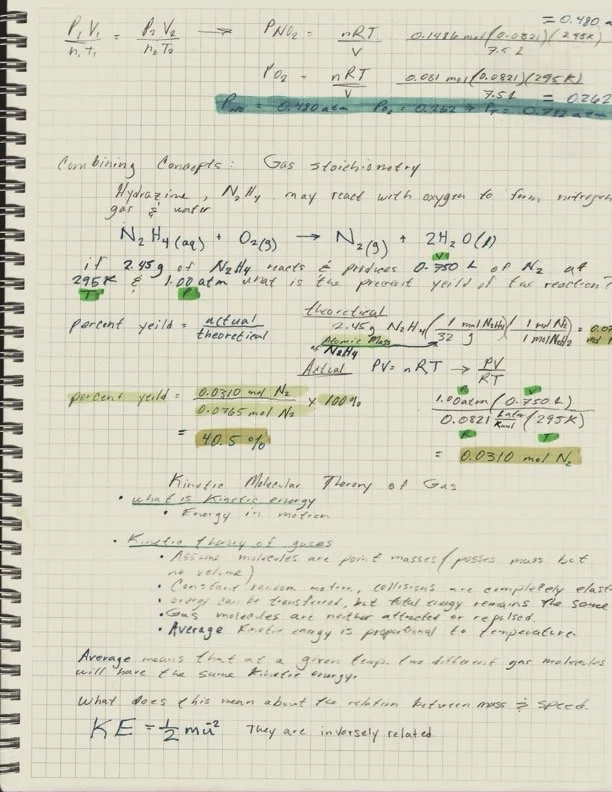 P₁V₁/n₁T₁ = P₂V₂/n₂T₂ → P_NO₂ = nRT/V 0.1486 mol(0.0821)(295K)/7.5L = 0.480 a
P_O₂ = nRT/V 0.081 mol(0.0821)(295K)/7.5L = 0.262
P_NO = 0.480 atm P_O₂ = 0.262 > P_T = 0.742 atm
Combining Concepts: Gas stoichiometry
Hydrazine, N₂H₄ may react with oxygen to form nitrogen
gas & water
N₂H₄(aq) + O₂(g) → N₂(g) + 2H₂O(l)
if 2.45g of N₂H₄ reacts & produces 0.750 L of N₂ at
295K & 1.00 atm what is the precent yeild of the reaction?
V
T P
theoretical
percent yeild = actual/theoretical 2.45g N₂H₄(1 mol N₂H₄/32 g)(1 mol N₂/1 mol N₂H₂) = 0.07
Atomic Mass
of N₂H₄
Actual PV = nRT → PV/RT
percent yeild = 0.0310 mol N₂/0.0765 mol N₂ × 100%
P V
1.00atm (0.750L)/0.0821 Latm/Kmol (295K)
R T
= 40.5 %
= 0.0310 mol N₂
Kinetic Molecular Theory of Gas
• what is Kinetic energy
• Energy in motion
• Kinetic theory of gases
• Assume molecules are point masses (posses mass but
no volume)
• Constant random motion, collisions are completely elasti
• energy can be transferred, but total energy remains the same
• Gas molecules are neither attracted or repulsed.
• Average Kinetic energy is proportional to temperature.
Average means that at a given temp. two different gas molecules
will have the same kinetic energy.
What does this mean about the relation between mass & speed.
KE = ½mū² They are inversely related